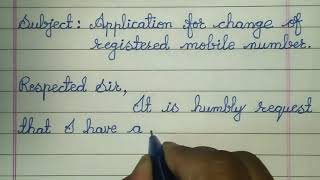 Subject: Application for change of
registered mobile number.
Respected Sir,
It is humbly request
that I have a